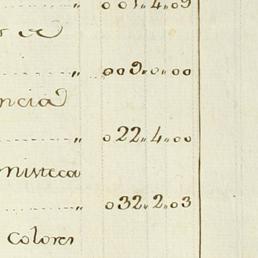 „ 001„4„09
„ 009„0„00
ncia
„ 022„4„00
misteca
„ 032„2„03
Colores